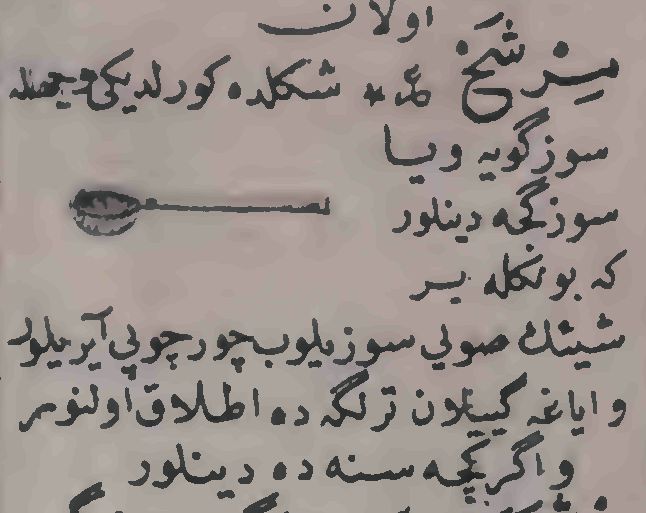 اولان
میزشخ عد* شکلده کورلدیکی وجهله
سوزگویه ویا
سوزگه دینلور
که بونکله بر
شینك صویی سوزیلوب چورچوپی آیریلور
وایاغه کییلان ترلکه ده اطلاق اولنور
واگریجه سنه ده دینلور